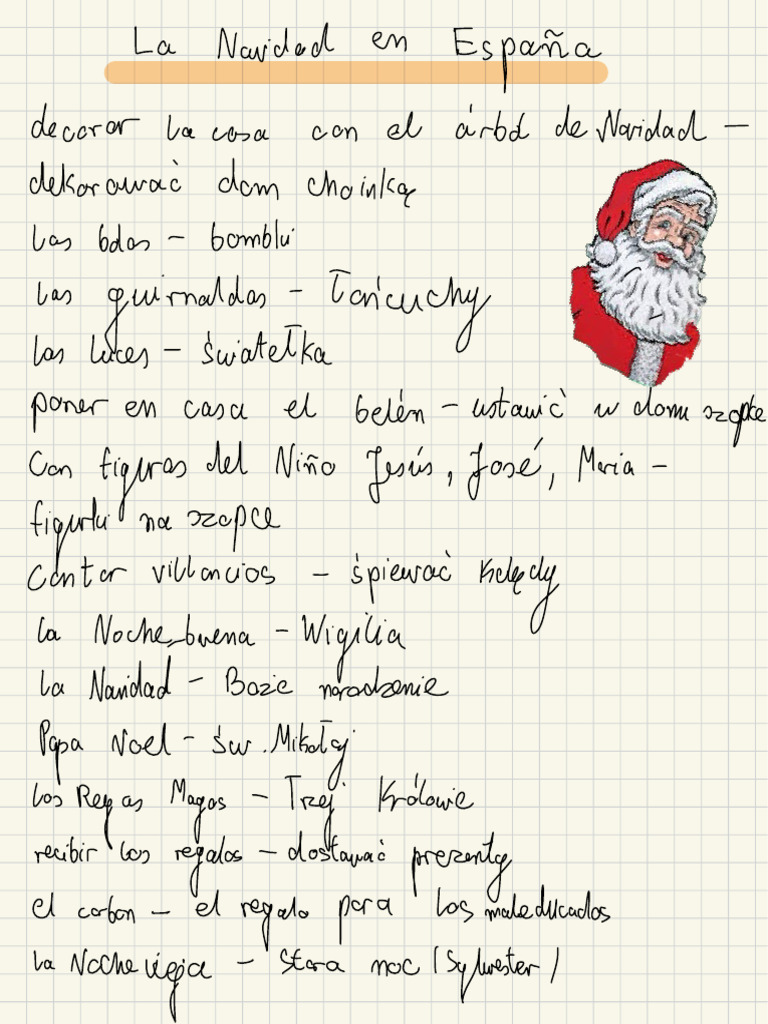 La Navidad en España
decorar la casa con el árbol de Navidad –
dekorować dom choinką
las bolas – bombki
las guirnaldas – łańcuchy
las luces – światełka
poner en casa el belén – ustawić w domu szopkę
Con figuras del Niño Jesús, José, Maria –
figurki na szopce
Cantar villancios – śpiewać kolędy
la Noche buena – Wigilia
la Navidad – Boże narodzenie
Papa Noel – św. Mikołaj
los Reyas Magos – Trzej Królowie
recibir los regalos – dostawać prezenty
el carbon – el regalo para los maleducados
la Noche vieja – stara noc (Sylwester)